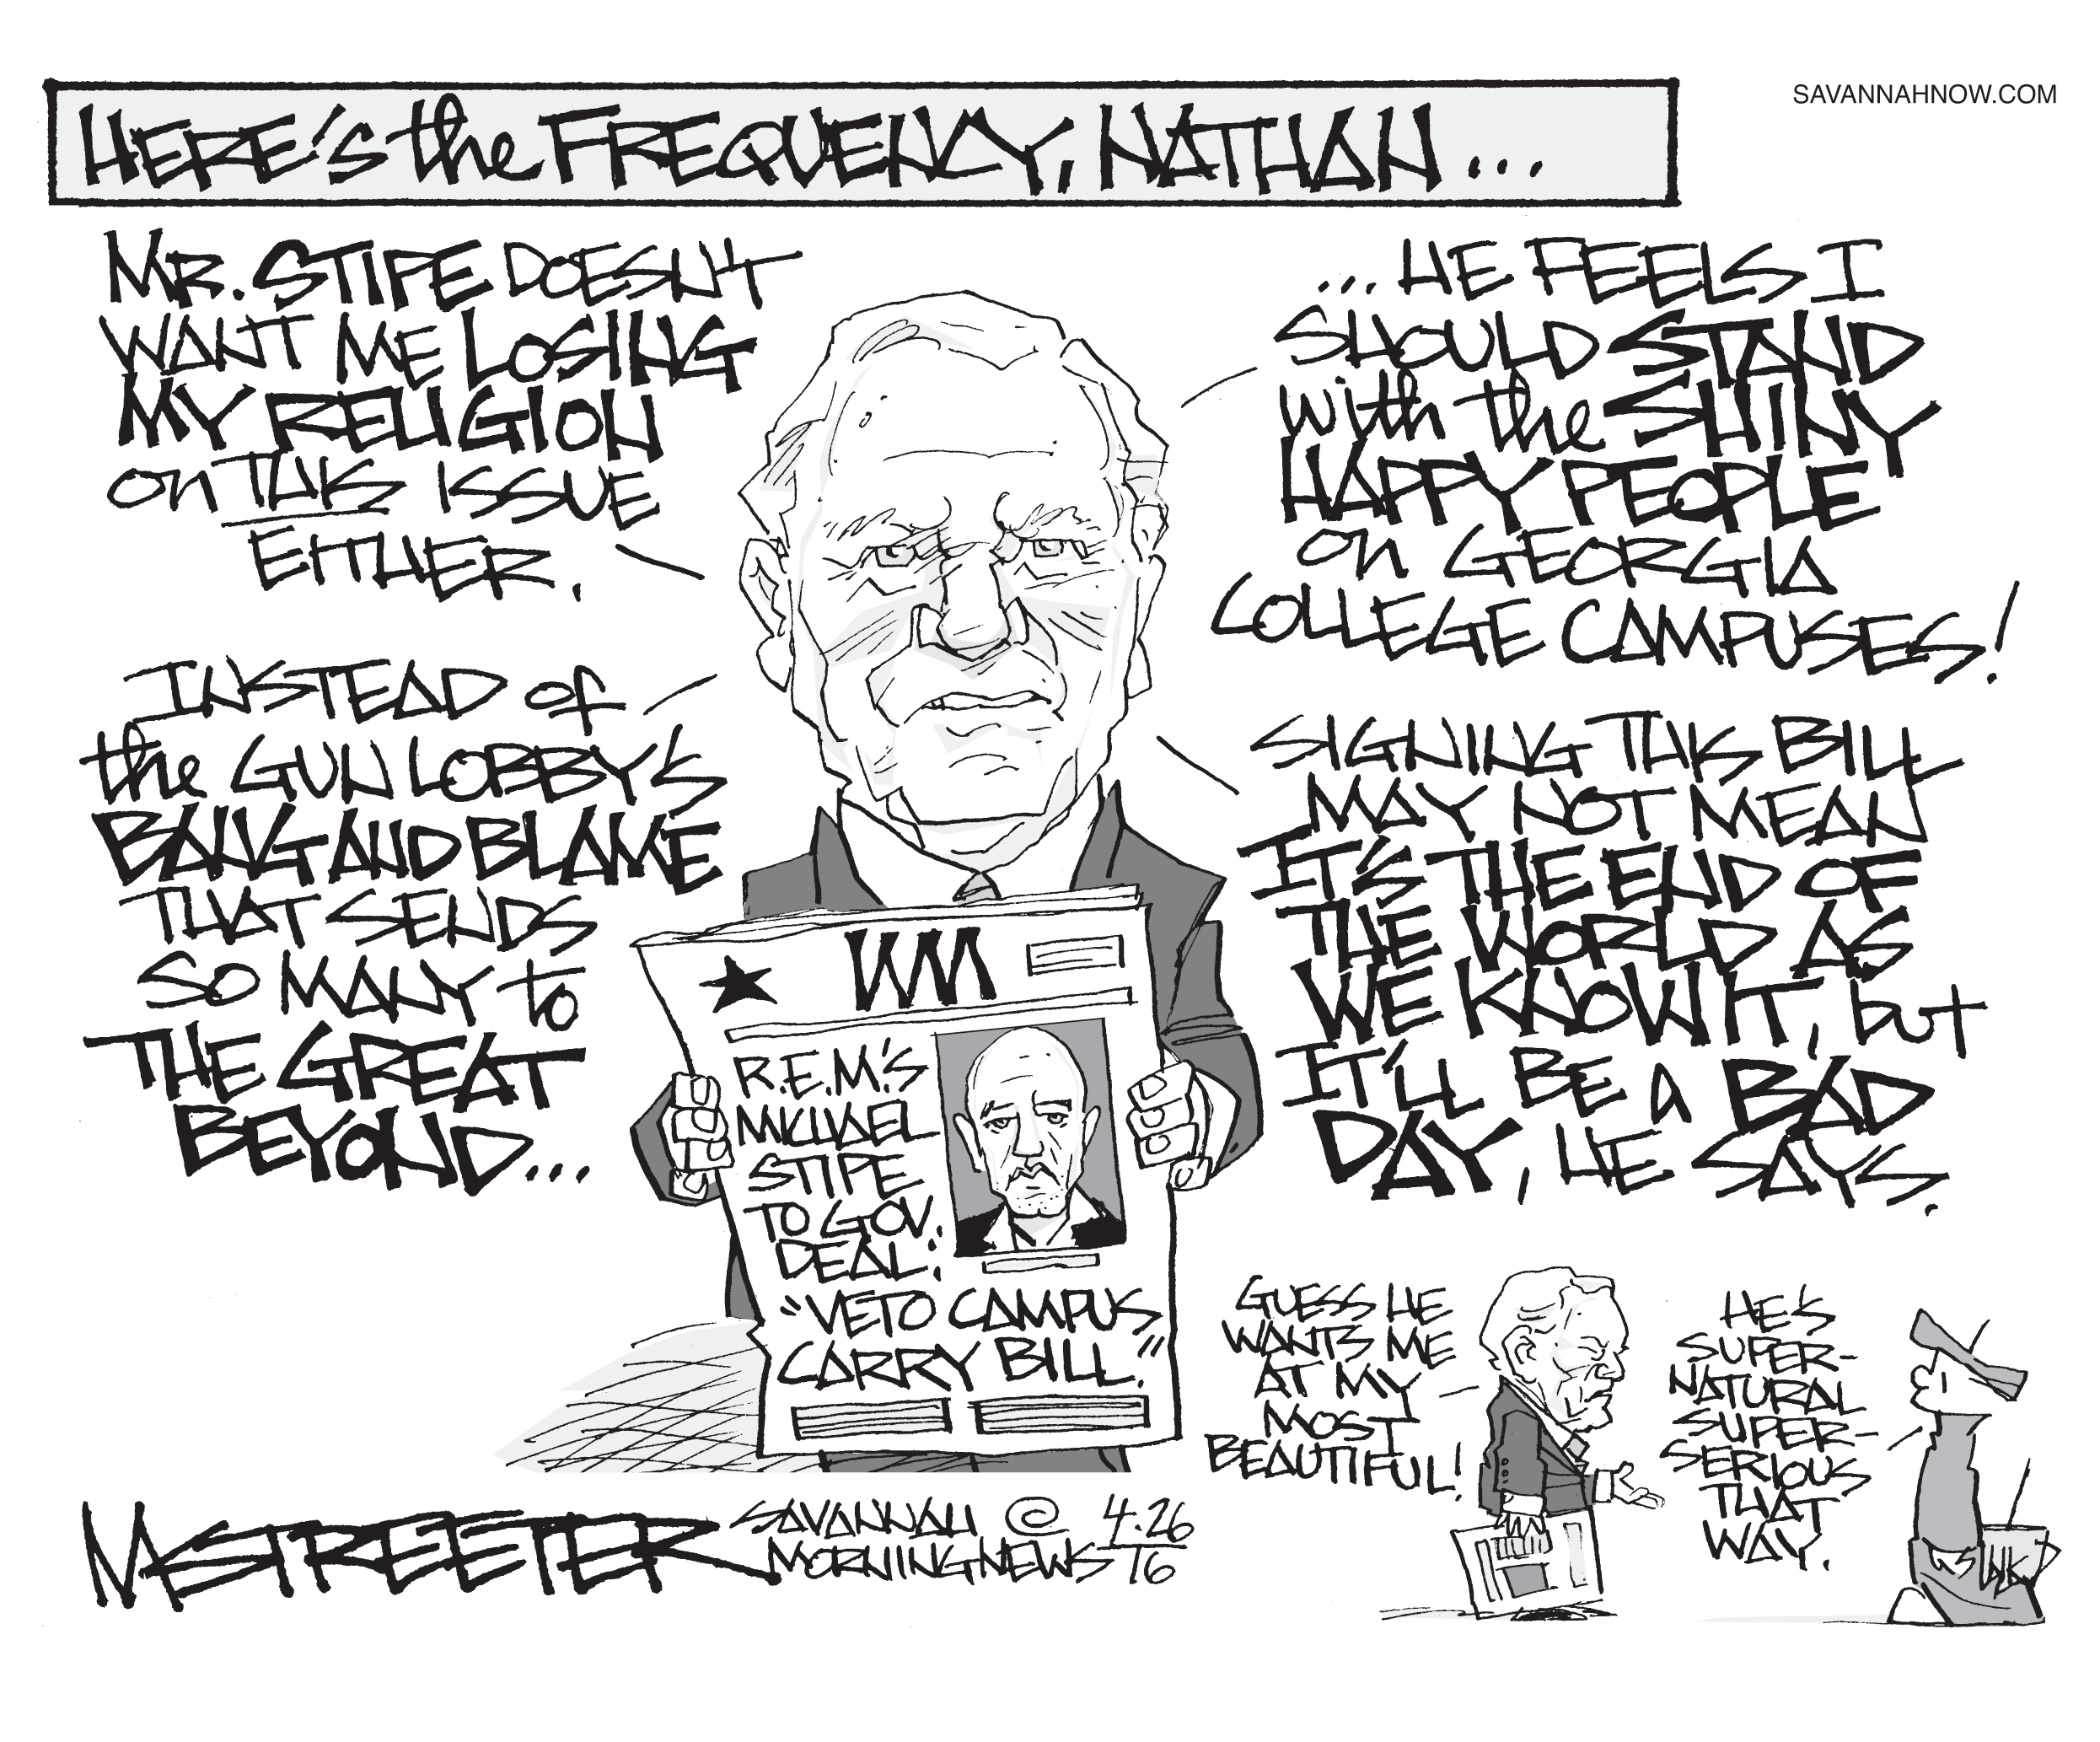 HERE'S the FREQUENCY, NATHAN...
SAVANNAHNOW.COM
MR. STIPE DOESN'T
WANT ME LOSING
MY RELIGION
on THIS ISSUE
EITHER.
...HE FEELS I
SHOULD STAND
with the SHINY
HAPPY PEOPLE
on GEORGIA
COLLEGE CAMPUSES!
INSTEAD of
the GUN LOBBY'S
BANG AND BLAME
THAT SENDS
SO MANY to
THE GREAT
BEYOND...
SIGNING THIS BILL
MAY NOT MEAN
IT'S THE END OF
THE WORLD AS
WE KNOW IT, but
IT'LL BE A BAD
DAY, HE SAYS.
R.E.M.'S
MICHAEL
STIPE
TO GOV.
DEAL:
"VETO CAMPUS
CARRY BILL."
GUESS HE
WANTS ME
AT MY
MOST
BEAUTIFUL!
HE'S
SUPER-
NATURAL
SUPER-
SERIOUS
THAT
WAY.
INK
MSTREETER
SAVANNAH
MORNING NEWS
© 4.26
16